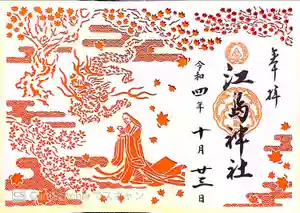 奉拝
江島神社
令和四年十月廿三日